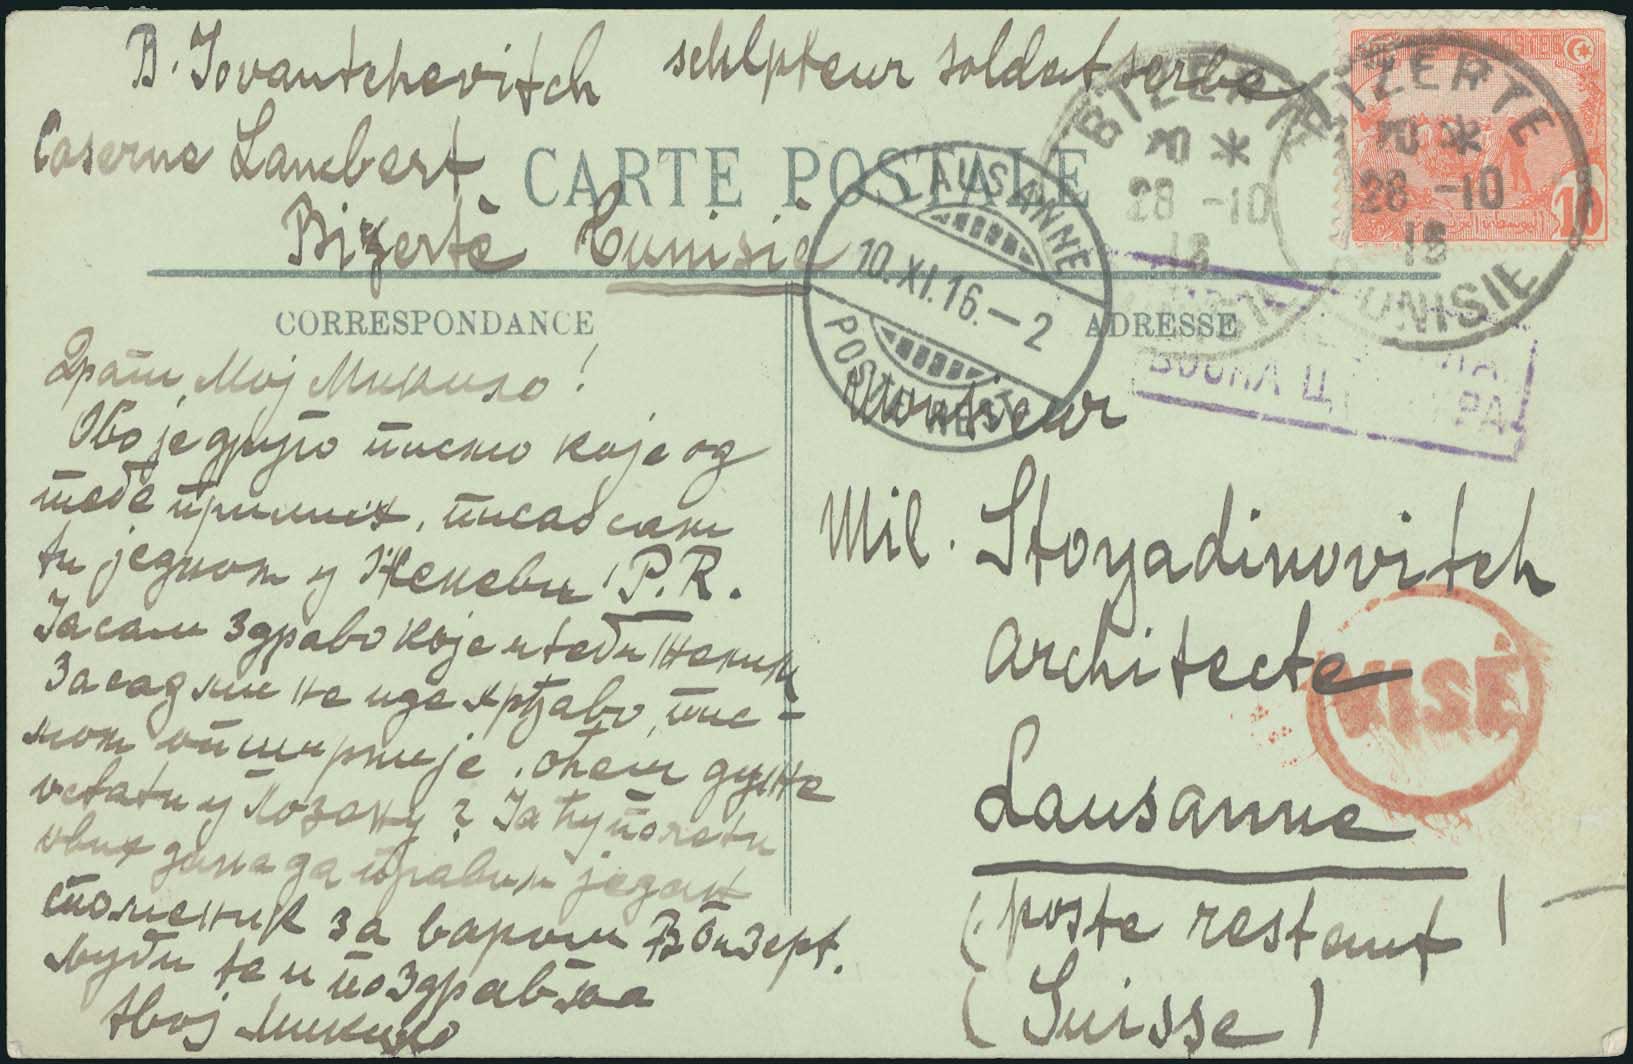 B. Iovantchevitch schlpteur soldat serbe
Caserne Lambert
Bizerte Tunisie
CARTE POSTALE
BIZERTE
28 -10
TUNISIE
BIZERTE
28 -10
16
TUNISIE
10
LAUSANNE
10.XI.16.–2
POSTE REST.
CORRESPONDANCE
ADRESSE
ВОЈНА ЦЕНЗУРА
Драги Мој Микило!
Ово је друго писмо које од
тебе примих, писао сам
ти једном у Женеви P.R.
Ја сам здраво које и теби желим
За сад ми не иде хрђаво, пис-
мом опширније. Оћеш дуже
остати у Лозани? Ја ћу почети
ових дана да правим један
споменик за варош Бизерт.
Љуби те и поздравља
твој
Monsieur
Mil. Stoyadinovitch
architecte
Lausanne
(poste restant)
(Suisse)
VISÉ